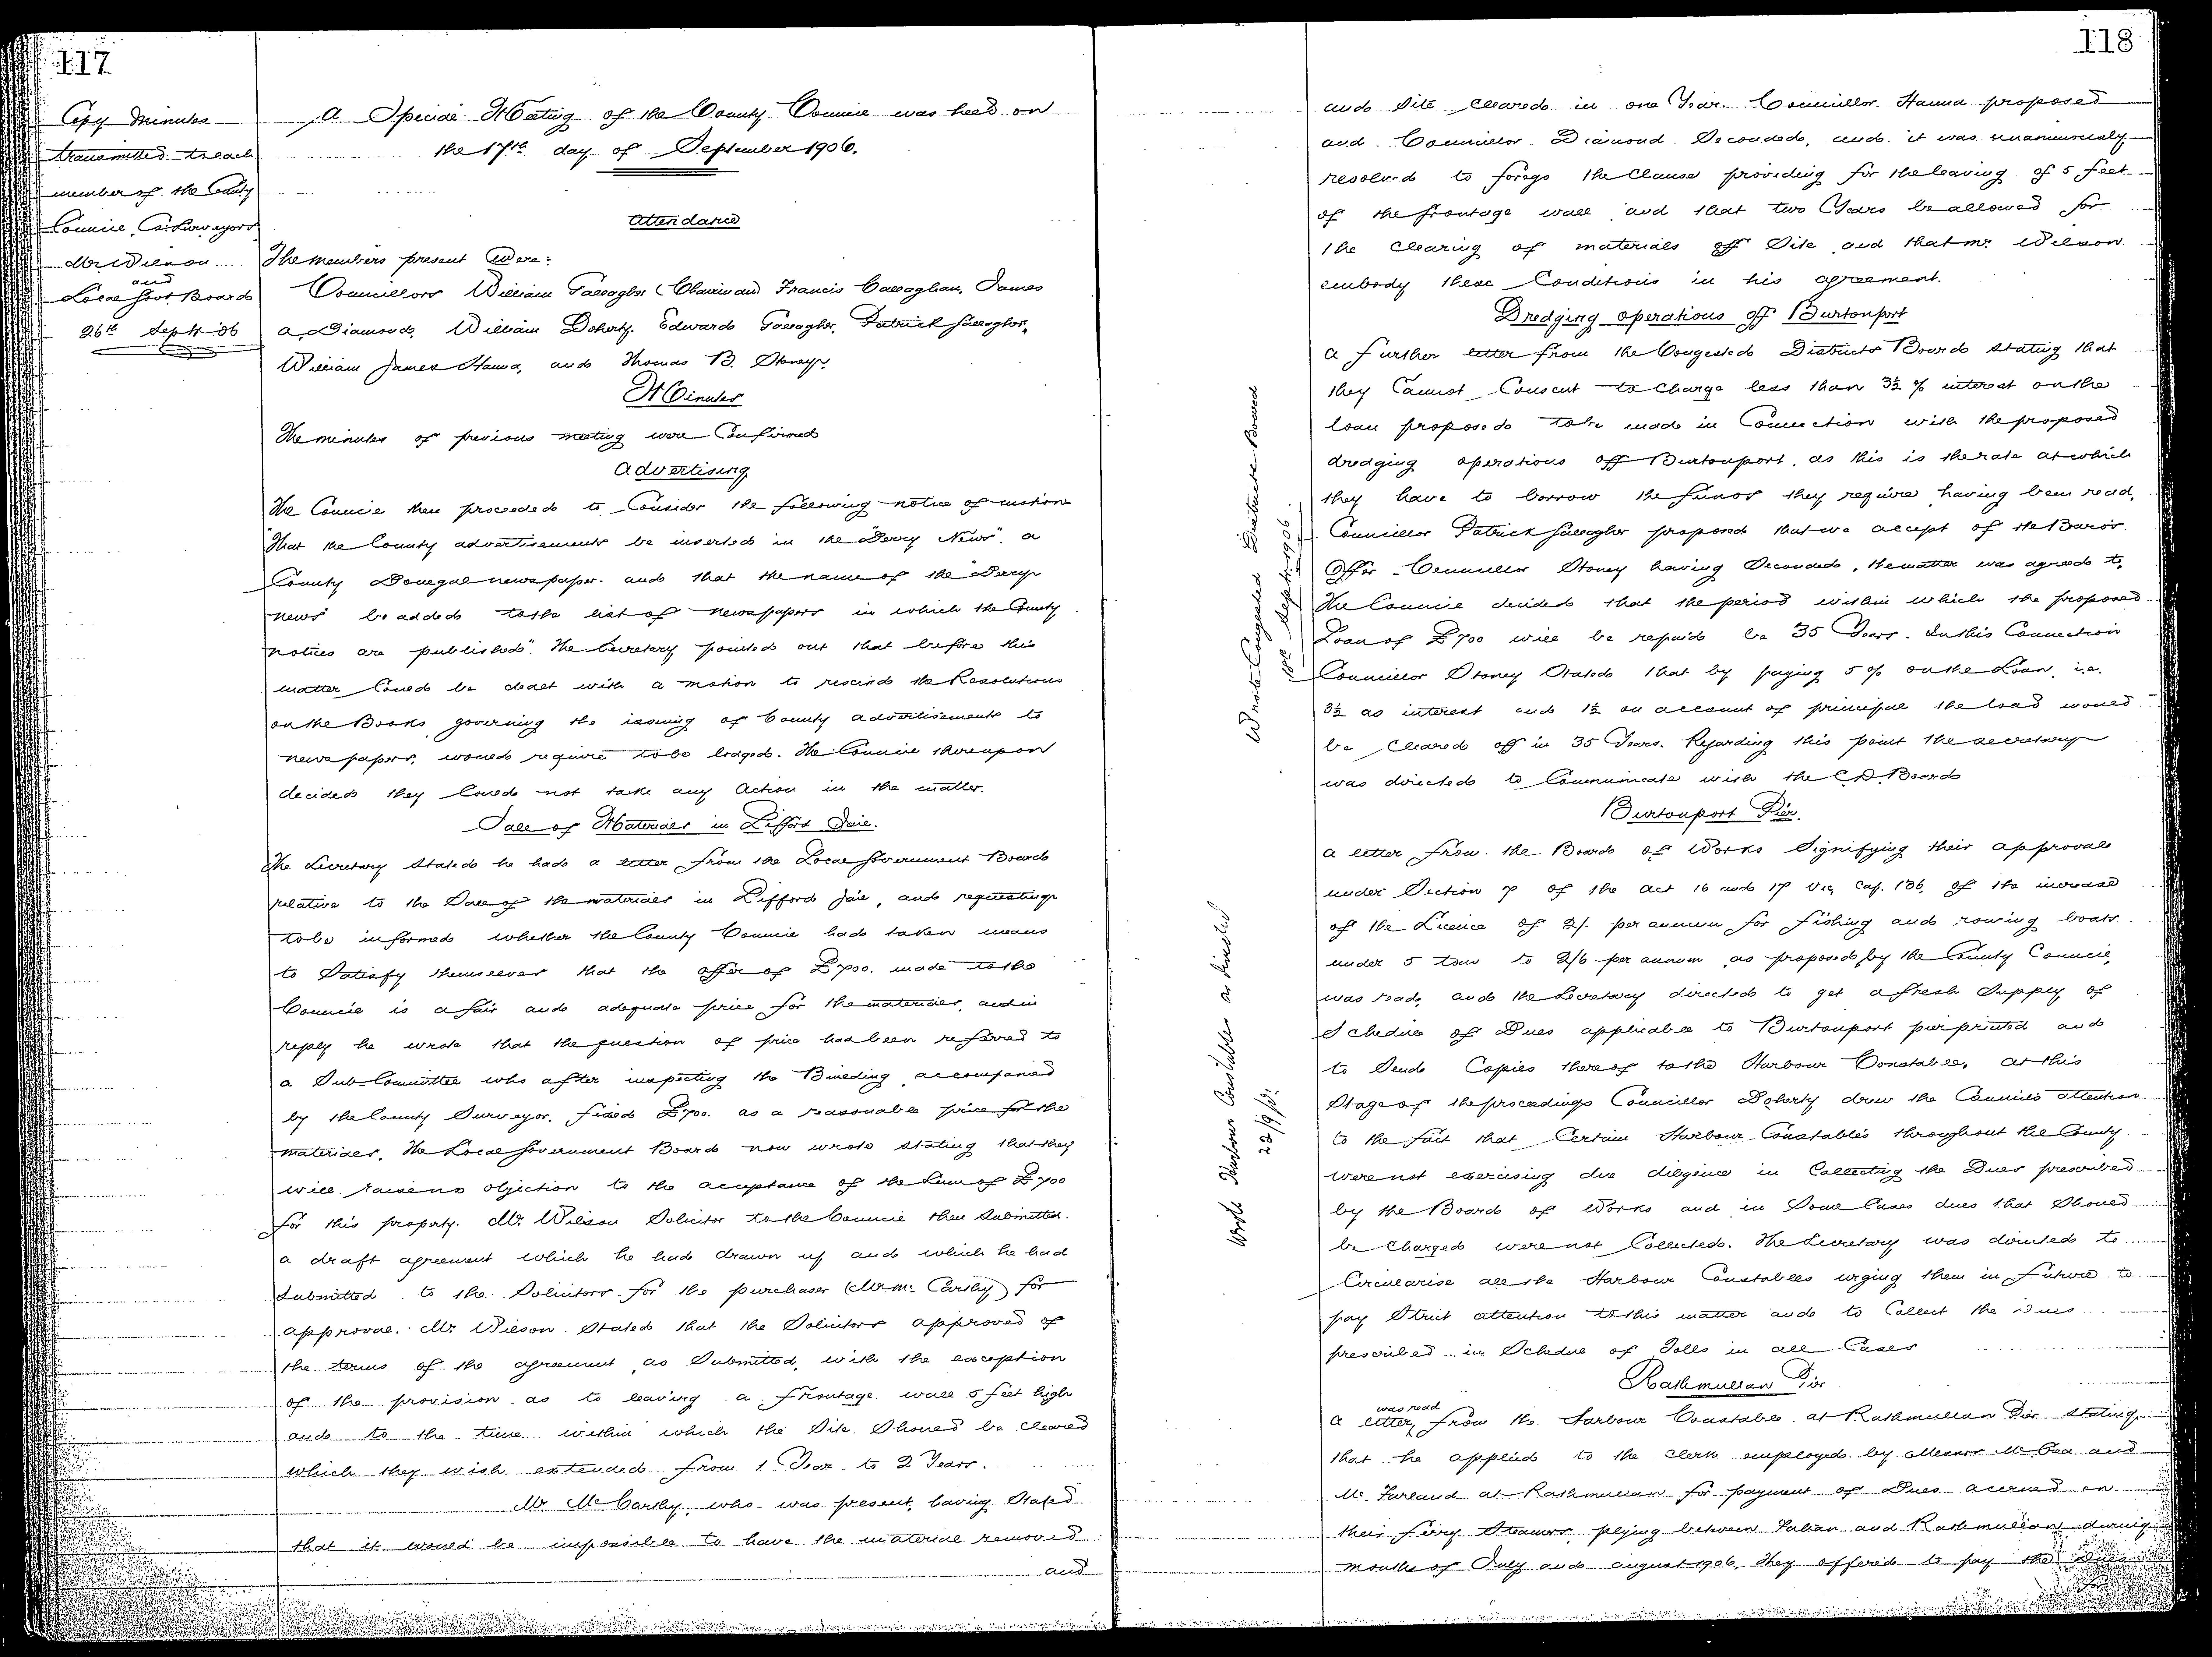 117
Copy minutes
transmitted to each
member of the County
Council, Co: Surveyors
Mr Wilson
and
Local Govt Board
26th Septr 06
A Special Meeting of the County Council was held on
the 17th day of September 1906.
Attendance
The members present were:
Councillors William Gallagher (Chairman) Francis Callaghan, James
A. Diamond, William Doherty, Edward Gallagher, Patrick Gallagher,
William James Hanna, and Thomas B. Stoney.
Minutes
The minutes of previous meeting were Confirmed
Advertising
The Council then proceeded to Consider the following notice of motion
"That the County advertisements be inserted in the "Derry News", a
County Donegal newspaper. and that the name of the "Derry
news" be added to the list of newspapers in which the County
notices are published". The Secretary pointed out that before this
matter Could be dealt with a motion to rescind the Resolutions
on the Books, governing the issuing of County advertisements to
newspapers, would require to be lodged. The Council thereupon
decided they Could not take any Action in the matter.
Sale of Materials in Lifford Jail.
The Secretary Stated he had a letter from the Local Government Board
relative to the Sale of the materials in Lifford Jail, and requesting
to be informed whether the County Council had taken means
to Satisfy themselves that the offer of £700. made to the
Council is a fair and adequate price for the materials, and in
reply he wrote that the question of price had been referred to
a Sub-Committee who after inspecting the Building, accompanied
by the County Surveyor, fixed £700. as a reasonable price for the
materials. The Local Government Board now wrote stating that they
will raise no objection to the acceptance of the Sum of £700
for this property. Mr. Wilson Solicitor to the Council then Submitted
a draft agreement which he had drawn up and which he had
Submitted to the Solicitors for the purchaser (Mr Mc. Carthy) for
approval. Mr. Wilson Stated that the Solicitors approved of
the terms of the agreement, as Submitted, with the exception
of the provision as to leaving a frontage wall 5 feet high
and to the time within which the Site Should be Cleared
which they wish extended from 1 Year to 2 Years.
Mr McCarthy, who was present, having Stated
that it would be impossible to have the material removed
and
118
and Site Cleared in one Year. Councillor Hanna proposed
and Councillor Diamond Seconded, and it was unanimously
resolved to forego the Clause providing for the leaving of 5 feet
of the frontage wall and that two Years be allowed for
the Clearing of materials off Site and that Mr. Wilson
embody these Conditions in his agreement.
Dredging operations off Burtonport
Wrote Congested Districts Board
18th Septr. 1906.
A further letter from the Congested Districts Board stating that
they Cannot Consent to Charge less than 3½ % interest on the
loan proposed to be made in Connection with the proposed
dredging operations off Burtonport, as this is the rate at which
they have to borrow the funds they require having been read,
Councillor Patrick Gallagher proposed that we accept of the Board's
Offer. Councillor Stoney having Seconded, the matter was agreed to.
The Council decided that the period within which the proposed
Loan of £700 will be repaid be 35 Years. In this Connection
Councillor Stoney Stated that by paying 5% on the Loan, i.e.
3½ as interest and 1½ on account of principal the load would
be Cleared off in 35 Years. Regarding this point the Secretary
was directed to Communicate with the C.D. Board
Burtonport Pier.
Wrote Harbour Constables as directed
22/9/06.
A letter from the Board of Works Signifying their approval
under Section 7 of the Act 16 and 17 Vic, Cap. 136, of the increase
of the Licence of 2/- per annum for fishing and rowing boats
under 5 tons to 2/6 per annum, as proposed by the County Council,
was read, and the Secretary directed to get a fresh Supply of
Schedule of Dues applicable to Burtonport pier printed and
to Send Copies thereof to the Harbour Constable. At this
Stage of the proceedings Councillor Doherty drew the Council's attention
to the fact that Certain Harbour Constables throughout the County
were not exercising due diligence in Collecting the Dues prescribed
by the Board of Works and in Some Cases dues that Should
be Charged were not Collected. The Secretary was directed to
Circularise all the Harbour Constables urging them in future to
pay Strict attention to this matter and to Collect the Dues
prescribed in Schedule of Tolls in all Cases
Rathmullan Pier
was read
A letter, from the Harbour Constable at Rathmullan Pier stating
that he applied to the Clerk employed by Messrs McCrea and
Mc. Farland at Rathmullan for payment of Dues accrued on
their ferry Steamers, plying between Fahan and Rathmullan during
months of July and August 1906. They offered to pay the Dues
for